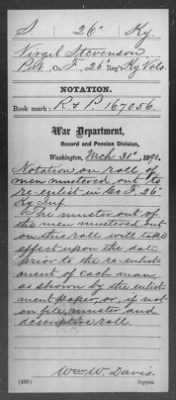 S. 26" Ky.
Virgil Stevenson
Pvt., Co. F, 26" Reg't Ky Vols.
NOTATION.
Book mark: R & P. 167056.
War Department,
Record and Pension Division,
Washington, Mch 31", 1890.
Notation on roll of
men mustered out to
re-enlist in Co F. 26"
Ky Inf
The muster out of
the men mustered out
on this roll will take
effect upon the date
prior to the re-enlist-
ment of each man,
as shown by the enlist-
ment paper, or, if not
on file, muster and
descriptive roll.
Wm. W. Davis.
Copyist.